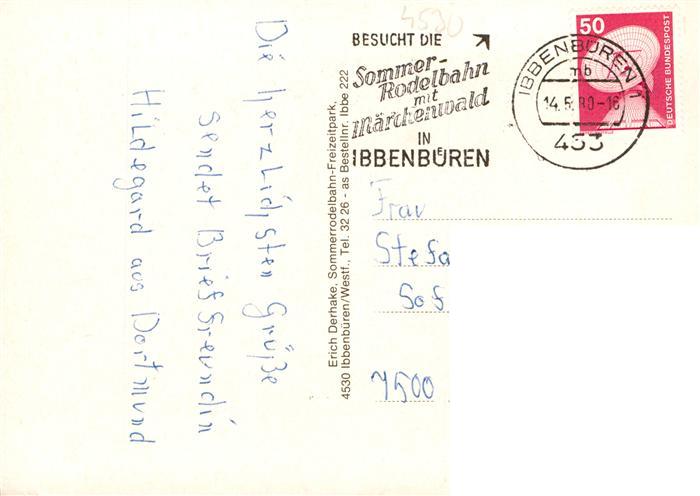 4530
BESUCHT DIE
Sommer-
Rodelbahn
mit
Märchenwald
IN
IBBENBÜREN
IBBENBÜREN 1
mb
14.5.80-16
453
50
DEUTSCHE BUNDESPOST
Die herzlichsten Grüße
sendet Brieffreundin
Hildegard aus Dortmund
Erich Derhake, Sommerrodelbahn-Freizeitpark,
4530 Ibbenbüren/Westf., Tel. 32 26 - as Bestellnr. Ibbe 222
Frau
Stefa
Sof
7500